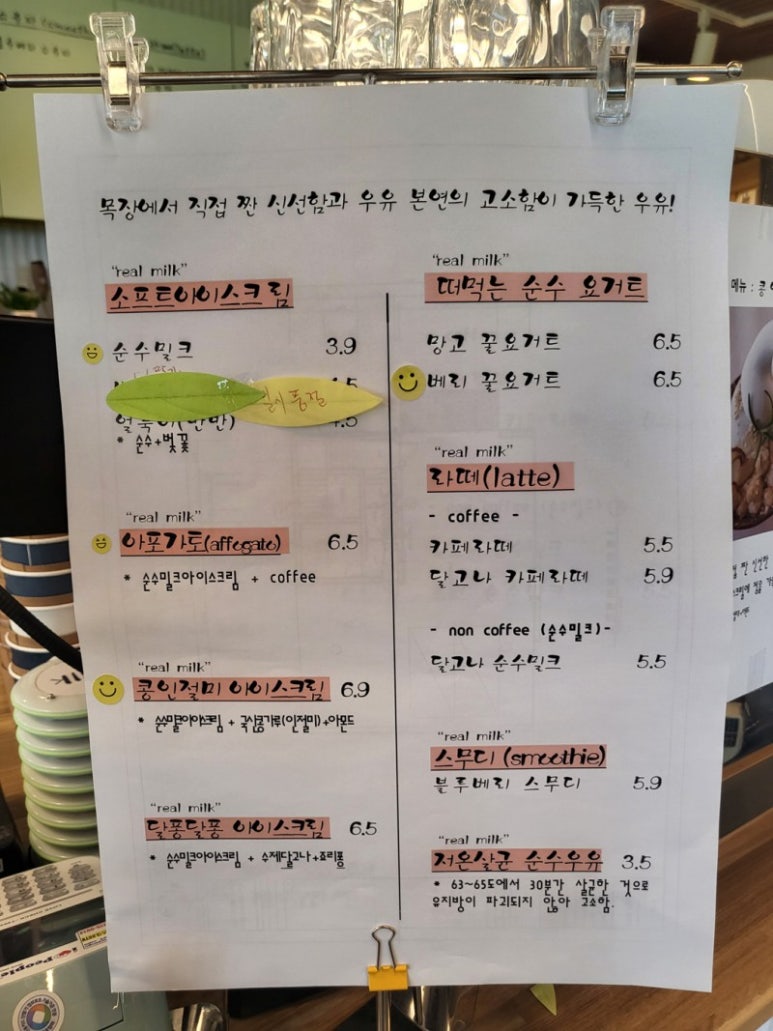 목장에서 직접 짠 신선함과 우유 본연의 고소함이 가득한 우유!
"real milk"
소프트아이스크림
순수밀크 3.9
품절
4.5
얼룩이(반반) 4.5
* 순수+벚꽃
"real milk"
아포가토(affogato) 6.5
* 순수밀크아이스크림 + coffee
"real milk"
콩인절미 아이스크림 6.9
* 순수밀크아이스크림 + 국산콩가루(인절미)+아몬드
"real milk"
달퐁달퐁 아이스크림 6.5
* 순수밀크아이스크림 + 수제달고나+죠리퐁
"real milk"
떠먹는 순수 요거트
망고 꿀요거트 6.5
베리 꿀요거트 6.5
"real milk"
라떼(latte)
- coffee -
카페라떼 5.5
달고나 카페라떼 5.9
- non coffee (순수밀크)-
달고나 순수밀크 5.5
"real milk"
스무디 (smoothie)
블루베리 스무디 5.9
"real milk"
저온살균 순수우유 3.5
* 63~65도에서 30분간 살균한 것으로
유지방이 파괴되지 않아 고소함.
메뉴 : 콩
People